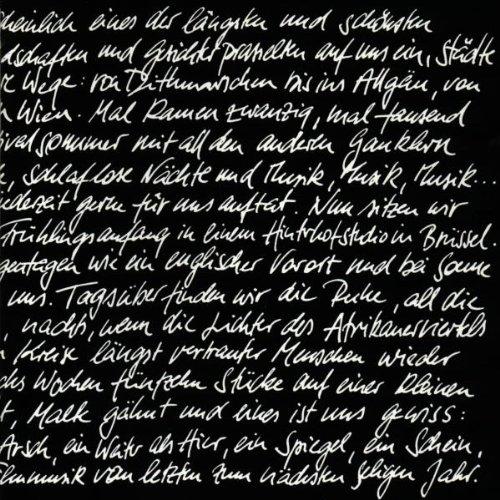 heinlich eines der längsten und schönsten
dschaften und Gesichter prasselten auf uns ein, Städte
e Wege: von Dithmarschen bis ins Allgäu, von
n Wien. Mal kamen zwanzig, mal tausend
ivalsommer mit all den anderen Gauklern
e, schlaflose Nächte und Musik, Musik, Musik...
ederzeit gerne für uns auftat. Nun sitzen wir
Frühlingsanfang in einem Hinterhofstudio in Brüssel.
getagen wie ein englischer Vorort und bei Sonne
uns. Tagsüber finden wir die Ruhe, all die
, nachts, wenn die Lichter des Afrikanerviertels
n Kreise längst vertrauter Menschen wieder
chs Wochen fünfzehn Stücke auf einer kleinen
t, Maek gähnt und eines ist uns gewiss:
Arsch, ein Weiter als Hier, ein Spiegel, ein Schein,
lmmusik vom letzten zum nächsten seligen Jahr.